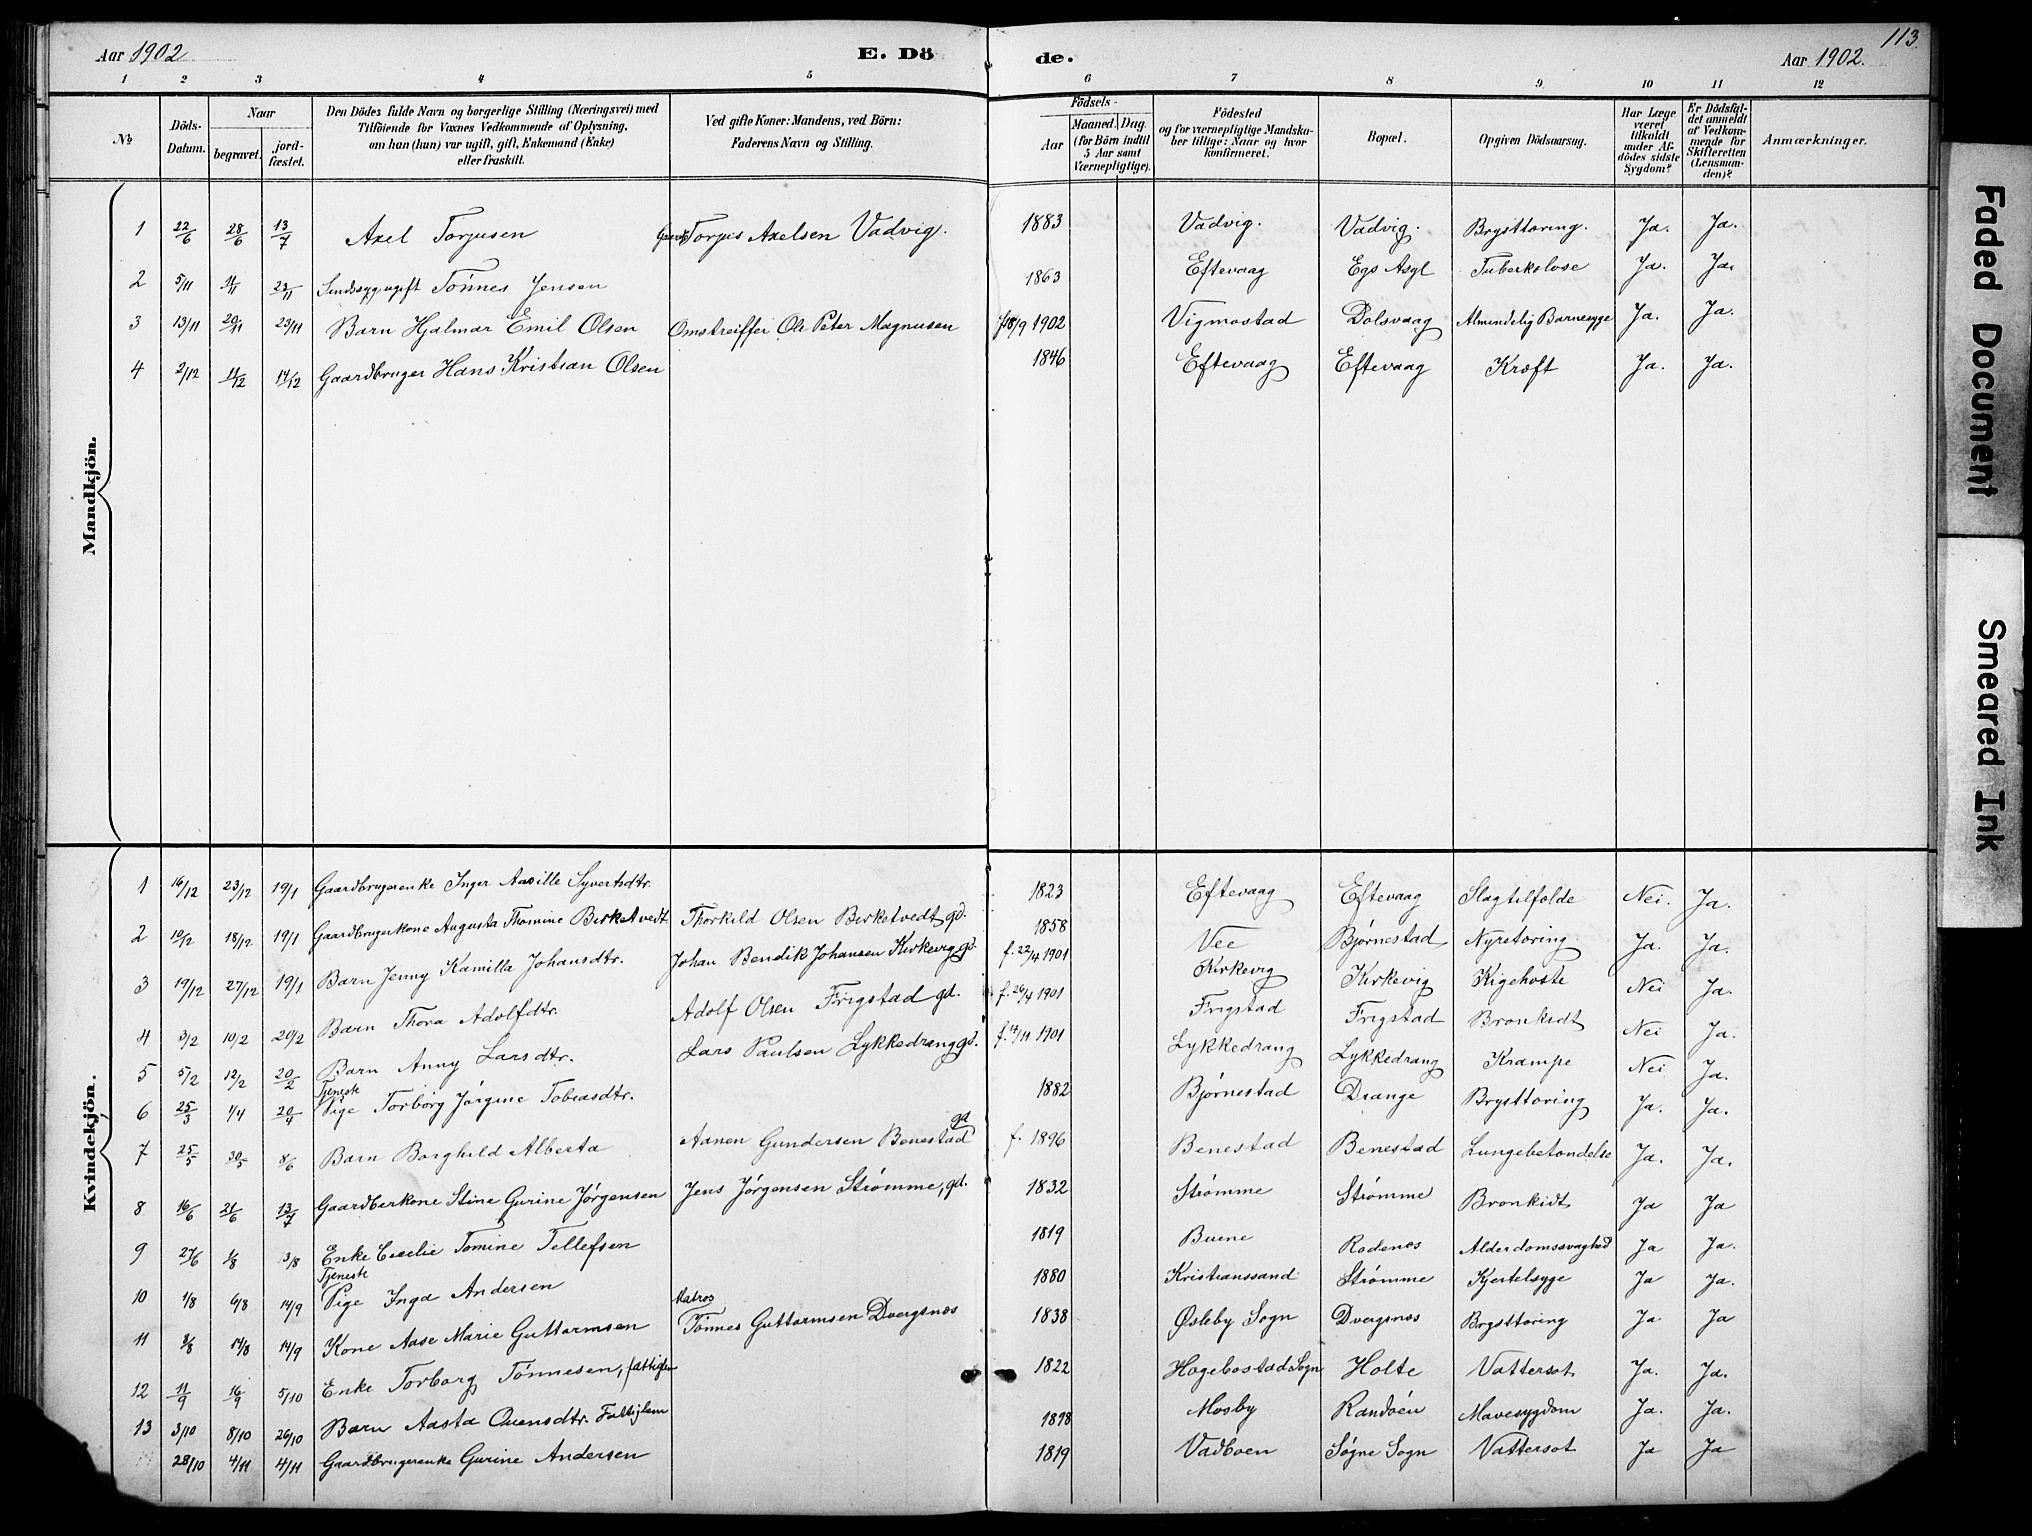 113.
Aar 1902 E. Dö de. Aar 1902.
1 2 3 4 5 6 7 8 9 10 11 12
No.
Döds-Datum.
Naar
begravet.
jord-fæstet.
Den Dödes fulde Navn og borgerlige Stilling (Næringsvei) med
Tilföiende for Voxnes Vedkommende af Oplysning,
om han (hun) var ugift, gift, Enkemand (Enke)
eller fraskilt.
Ved gifte Koner: Mandens, ved Börn:
Faderens Navn og Stilling.
Födsels-
Aar
Maaned. Dag.
(for Börn indtil
5 Aar samt
Værnepligtige).
Födested
og for værnepligtige Mandska-
ber tillige: Naar og hvor
konfirmeret.
Bopæl.
Opgiven Dödsaarsag.
Har Læge
været
tilkaldt
under Af-
dödes sidste
Sygdom?
Er Dödsfal-
det anmeldt
af Vedkom-
mende for
Skifteretten
(Lensman-
den)?
Anmærkninger.
Mandkjön.
1 22/6 28/6 13/7 Axel Torjusen Torjus Axelsen Vadvig. 1883 Vadvig. Vadvig. Brysttæring. Ja. Ja.
2 5/11 11/11 23/11 Sindssyg, ugift Tönnes Jensen 1863 Eftevaag Egs Asyl Tuberkulose Ja. Ja.
3 13/11 20/11 23/11 Barn Hjalmar Emil Olsen Omstreiffer Ole Peter Magnusen f 18/9 1902 Vigmostad Dolsvaag Almindelig Barnesyge Ja. Ja.
4 2/12 11/12 14/12 Gaardbruger Hans Kristian Olsen 1846 Eftevaag Eftevaag Kræft Ja. Ja.
Kvindekjön.
1 16/12 23/12 19/1 Gaardbrugerenke Inger Aasille Syvertsdtr. 1823 Eftevaag Eftevaag Slagtilfælde Nei. Ja.
2 10/12 18/12 19/1 Gaardbrugerkone Augusta Thomine Birketvedt Thorkild Olsen Birketvedt gd. 1858 Vee Bjørnestad Nyretæring Ja. Ja.
3 19/12 27/12 19/1 Barn Jenny Kamilla Johansdtr. Johan Bendik Johansen Kirkevig gd. f. 22/4 1901 Kirkevig Kirkevig Kigehoste Nei Ja.
4 3/2 10/2 20/2 Barn Thora Adolfdtr. Adolf Olsen Frigstad gd. f. 26/4 1901 Frigstad Frigstad Bronkidt Nei Ja.
5 5/2 12/2 20/2 Barn Anny Larsdtr. Lars Paulsen Lykkedrang gd. f. 14/11 1901 Lykkedrang Lykkedrang Krampe Nei Ja.
6 25/3 1/4 20/4 Tjeneste Pige Torborg Jørgine Tobiasdtr. 1882 Bjørnestad Drange Brysttæring Ja. Ja.
7 25/5 30/5 8/6 Barn Borghild Alberta Aanen Gundersen Benestad gd f. 1896 Benestad Benestad Lungebetændelse Ja. Ja.
8 16/6 21/6 13/7 Gaardberkone Stine Gurine Jørgensen Jens Jørgensen Strømme, gd. 1832 Strømme Strømme Bronkidt Ja Ja
9 27/6 1/8 3/8 Enke Cecelie Tomine Tellefsen 1819 Buene Rodenes Alderdomssvaghed Ja Ja.
10 1/8 6/8 14/9 Tjeneste Pige Inga Andersen 1880 Kristianssand Strømme Kjertelsyge Ja Ja.
11 8/8 14/8 14/9 Kone Aase Marie Guttormsen Matros Tönnes Guttormsen Dvergsnes 1838 Øsleby Sogn Dvergsnes Brysttæring Ja Ja
12 11/9 16/9 5/10 Enke Torborg Tönnesen, fattiglem 1822 Hægebostad Sogn Holte Vattersot Ja. Ja.
13 3/10 8/10 26/10 Barn Aasta Ovensdtr. Fattiglem 1898 Mosby Randøen Mavesygdom Ja. Ja.
28/10 4/11 4/11 Gaardbrugerenke Gurine Andersen 1819 Vadboen Søgne Sogn Vattersot Ja Ja
Faded Document
Smeared Ink